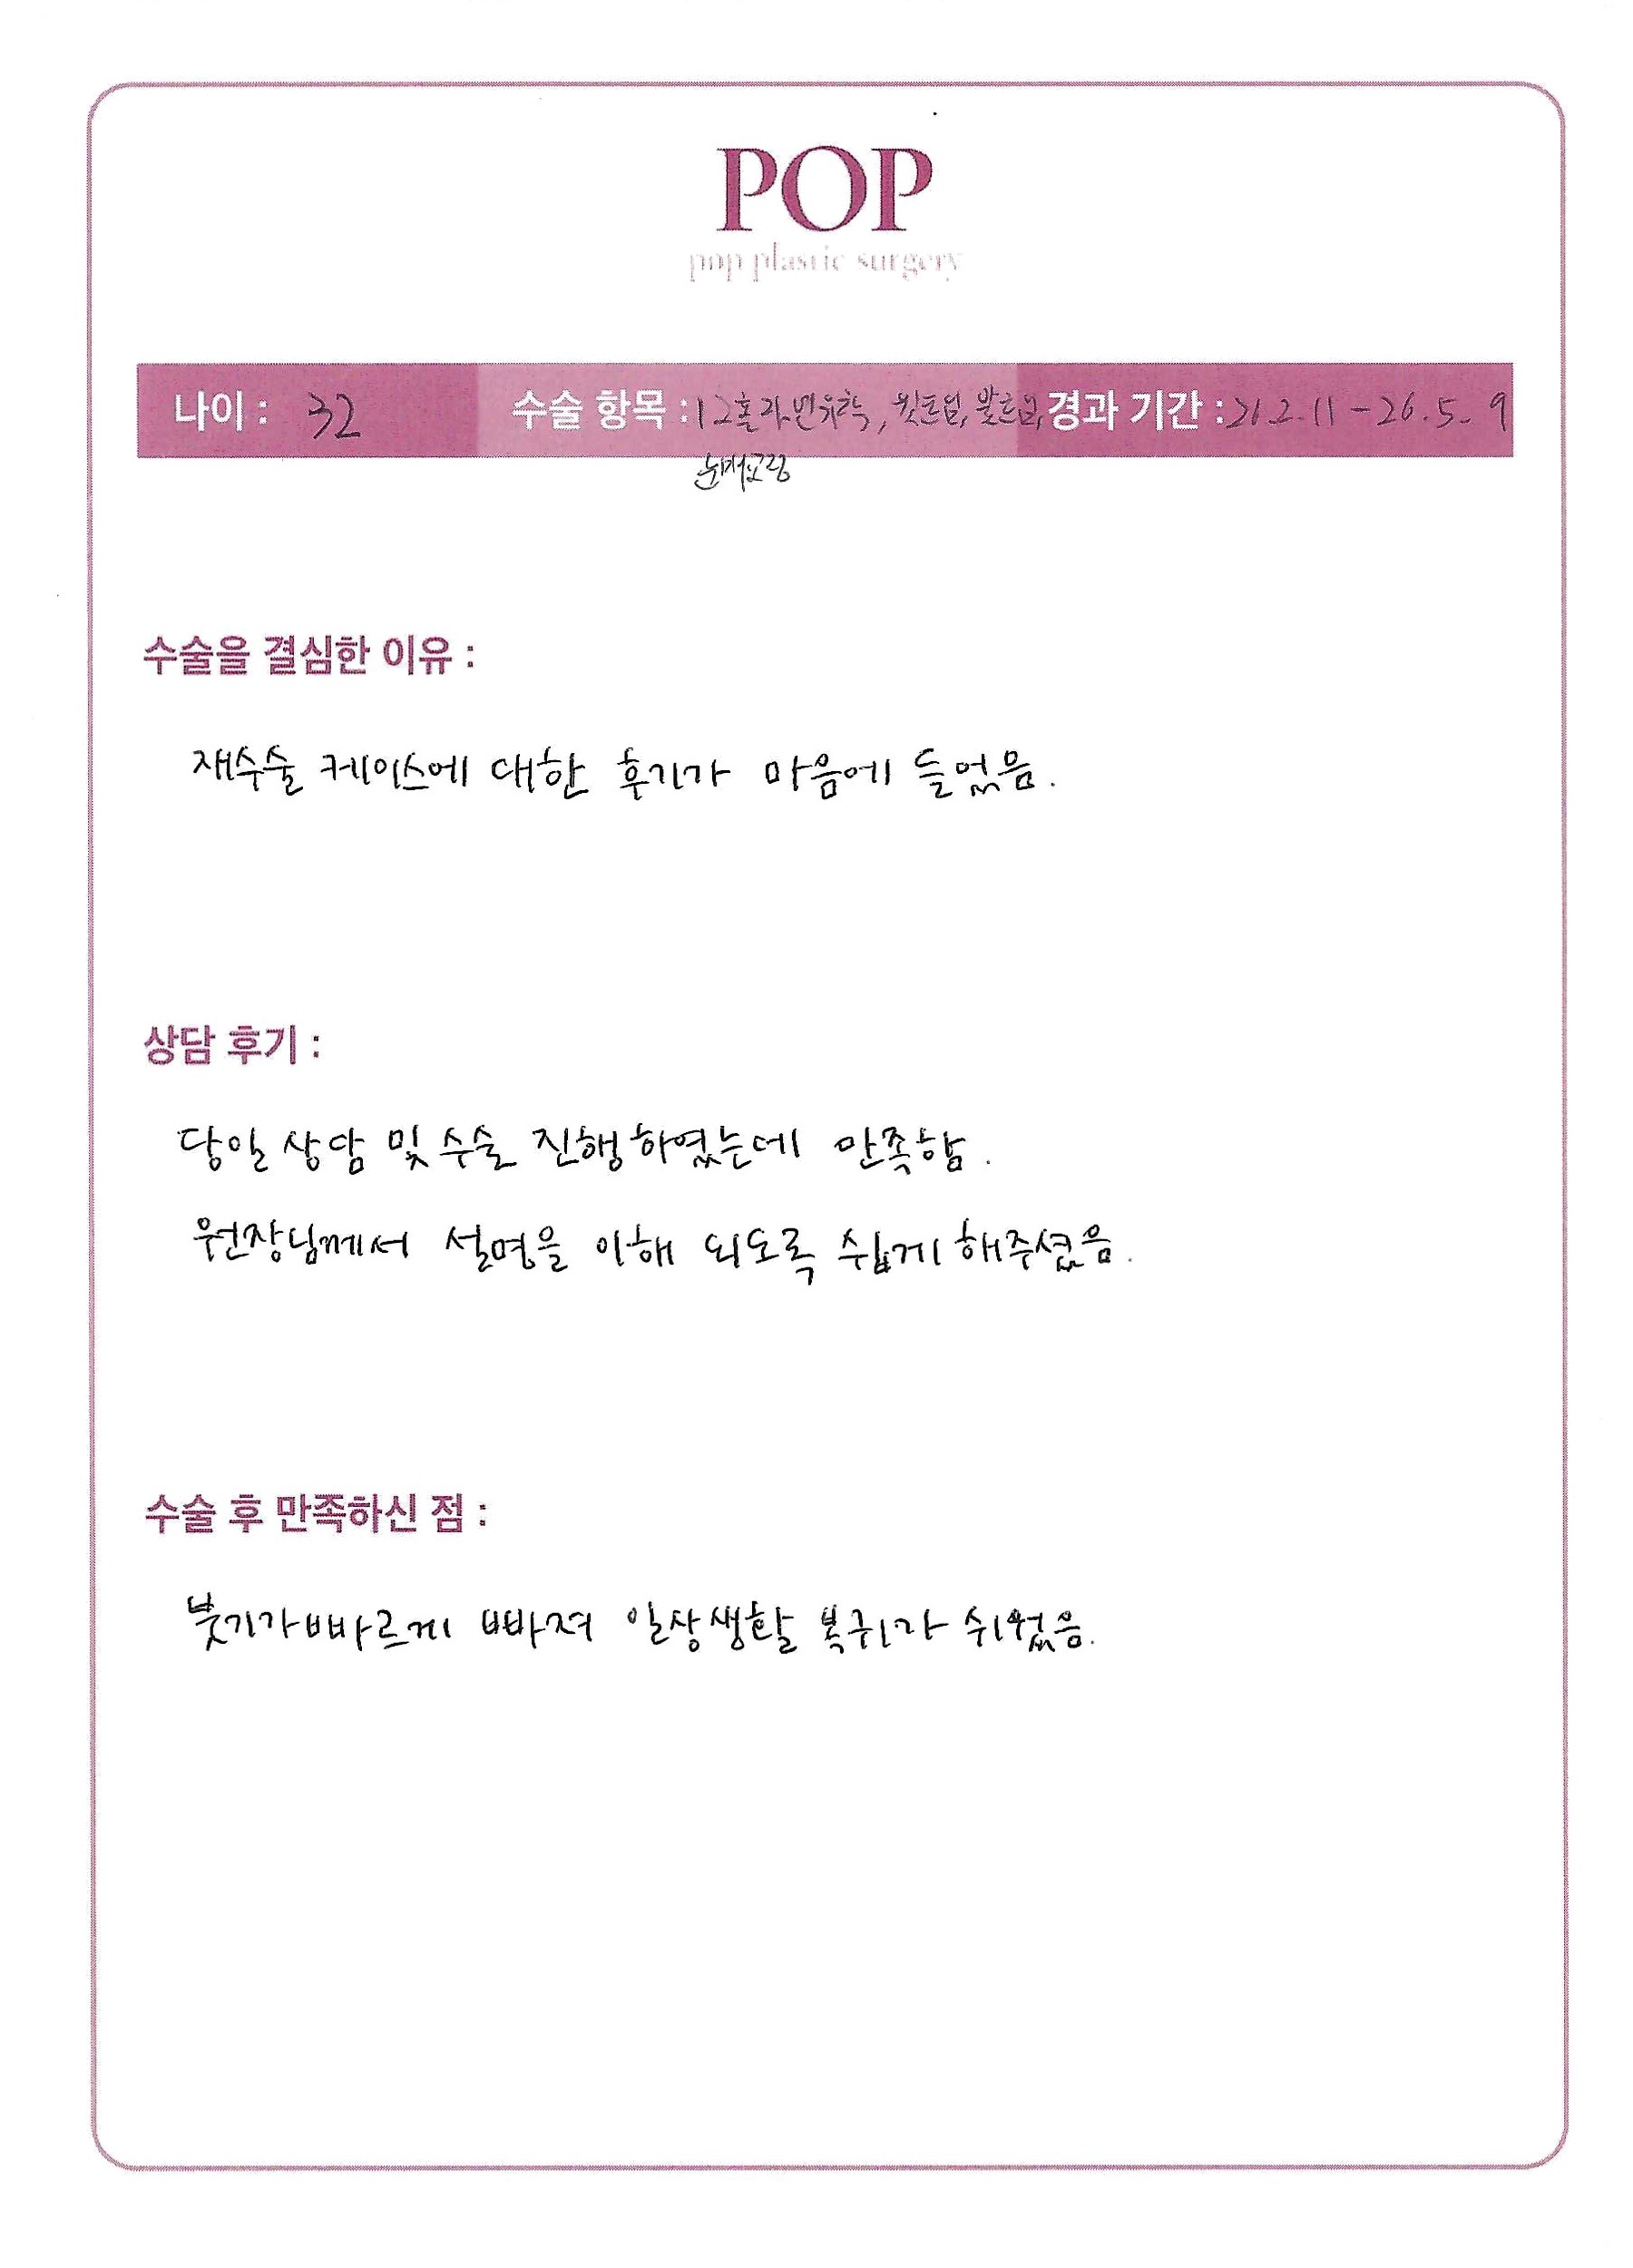 POP
pop plastic surgery
나이 : 32 수술 항목 : 12홀자연유착, 윗트임, 밑트임, 경과 기간 : 26.2.11 - 26.5.9
눈매교정
수술을 결심한 이유 :
재수술 케이스에 대한 후기가 마음에 들었음.
상담 후기 :
당일 상담 및 수술 진행하였는데 만족함.
원장님께서 설명을 이해 되도록 쉽게 해주셨음.
수술 후 만족하신 점 :
붓기가 빠르게 빠져 일상생활 복귀가 쉬웠음.